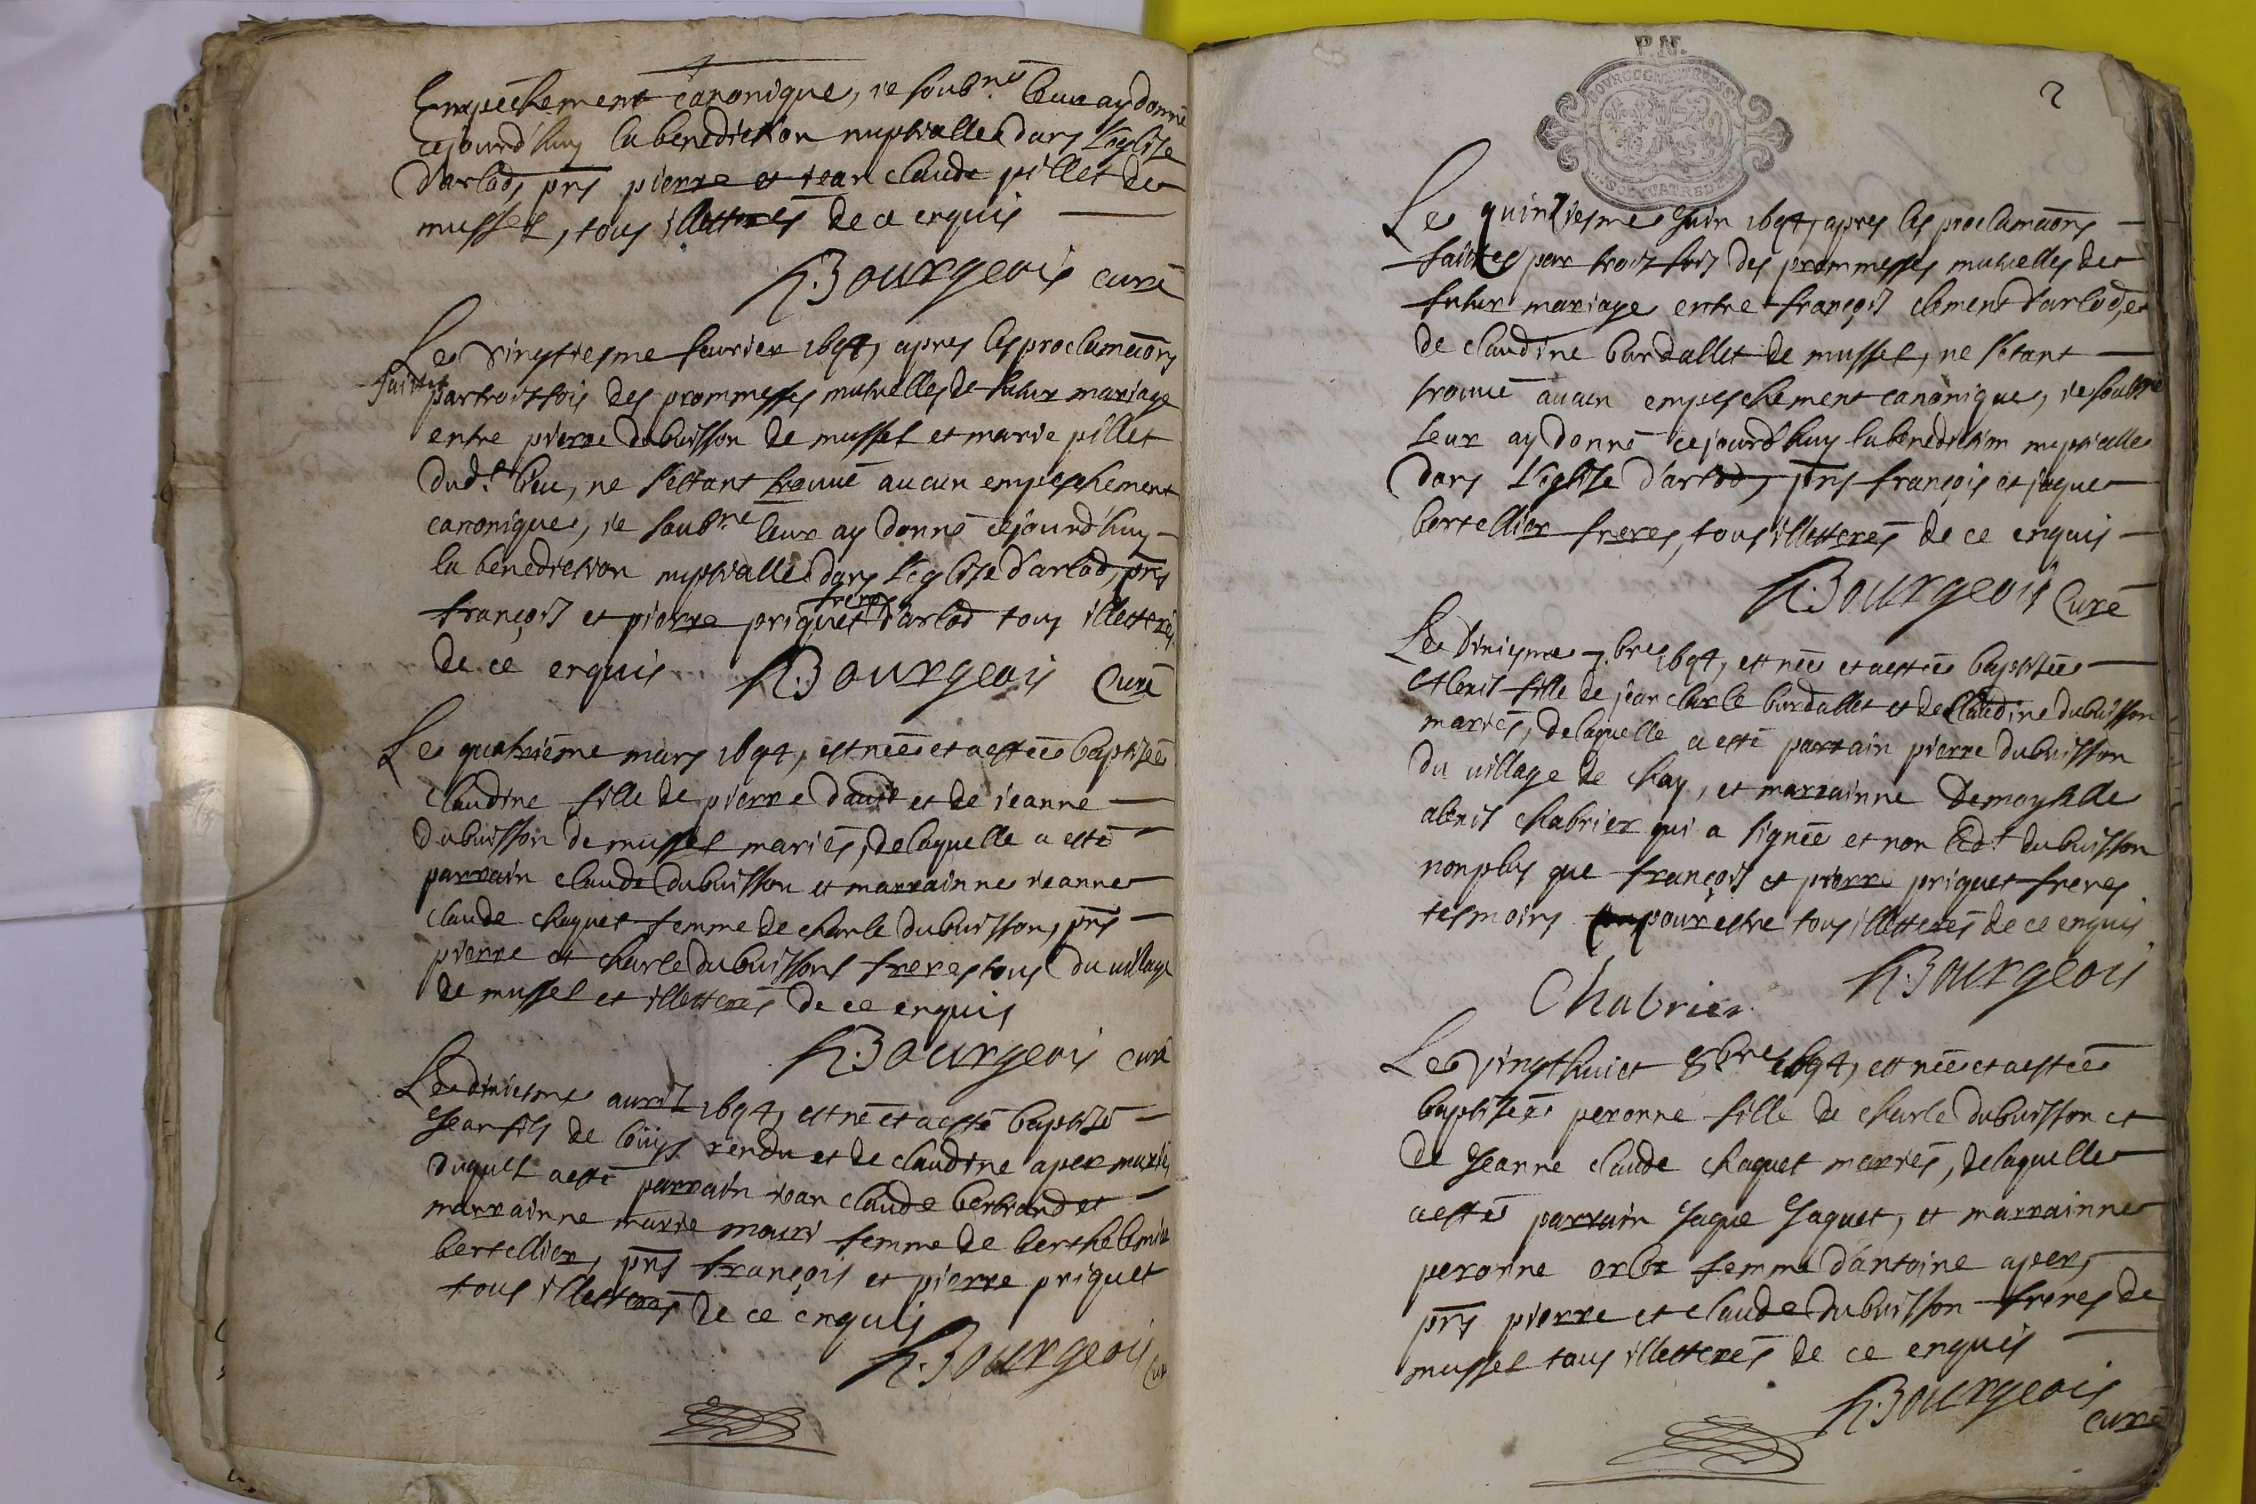 Empeschement canonique, ie soub.né leur ay donné
cejourd'huy la benediction nuptialle dans l'église
d'arlod, pñs pierre et iean claude pillet de
mussel, tous illettrés de ce enquis
h. Bourgeois curé
Le vingtiesme feurier 1694, apres les proclamaõns
faittes
partroisfois des prommesses mutuelles de futur mariage
entre pierre dubuisson de mussel et marie pillet
dud.t lieu, ne s'estant trouué aucun empeschement
canonique, ie soub.né leur ay donné cejourd'huy
la benediction nuptialle dans l'eglise d'arlod, pñs
freres
françois et pierre priquet d'arlod tous illetterés
de ce enquis h. Bourgeois Curé
Le quatriéme mars 1694, est née et a estée baptisée
claudine fille de pierre dauid et de ieanne
dubuisson de mussel mariés, delaquelle a esté
parrain claude dubuisson et marrainne ieanne
claude chaquet femme de charle dubuisson, pñs
pierre et charle dubuissons freres tous du uillage
de mussel et illetterés de ce enquis
h. Bourgeois curé
Le dixiesme auril 1694, est né et a esté baptisé
Jean fils de loüys rendu et de claudine aper mariés
duquel a esté parrain iean claude bertrand et
marrainne marie mouri femme de berthelemie
bertellier, pñs françois et pierre priquet
tous illetterés de ce enquis
h. Bourgeois Cur
P.N.
2
Le quinziesme Juin 1694, apres les proclamaõns
faittes par trois fois des prommesses mutuelles de
futur mariage entre françois clement d'arlod, et
de claudine burdallet de mussel, ne s'étant
trouué aucun empeschement canonique, ie soub.né
leur ay donné cejourd'huy la benediction nuptialle
dans l'église d'arlod, pñs françois et jaque
bertellier freres, tous illetterés de ce enquis
h. Bourgeois Curé
Le dixiesme 7.bre 1694, est née et a estée baptisée
Alexis fille de jean charle burdallet et de Claudine dubuisson
mariés, delaquelle a esté parrain pierre dubuisson
du uillage de chay, et marrainne Demoyselle
alexis chabrier qui a signée et non led.t dubuisson
nonplus que françois et pierre priquet freres
tesmoins pour estre tous illetterés de ce enquis
h. Bourgeois
Chabrier
Le vingthuict 8bre 1694, est née et a estée
baptisée peronne fille de charle dubuisson et
de Jeanne claude chaquet mariés, delaquelle
a esté parrain Jaque Jaquet, et marrainne
peronne orbe femme d'antoine aper,
pñs pierre et claude dubuisson freres de
mussel tous illetterés de ce enquis
h. Bourgeois
curé